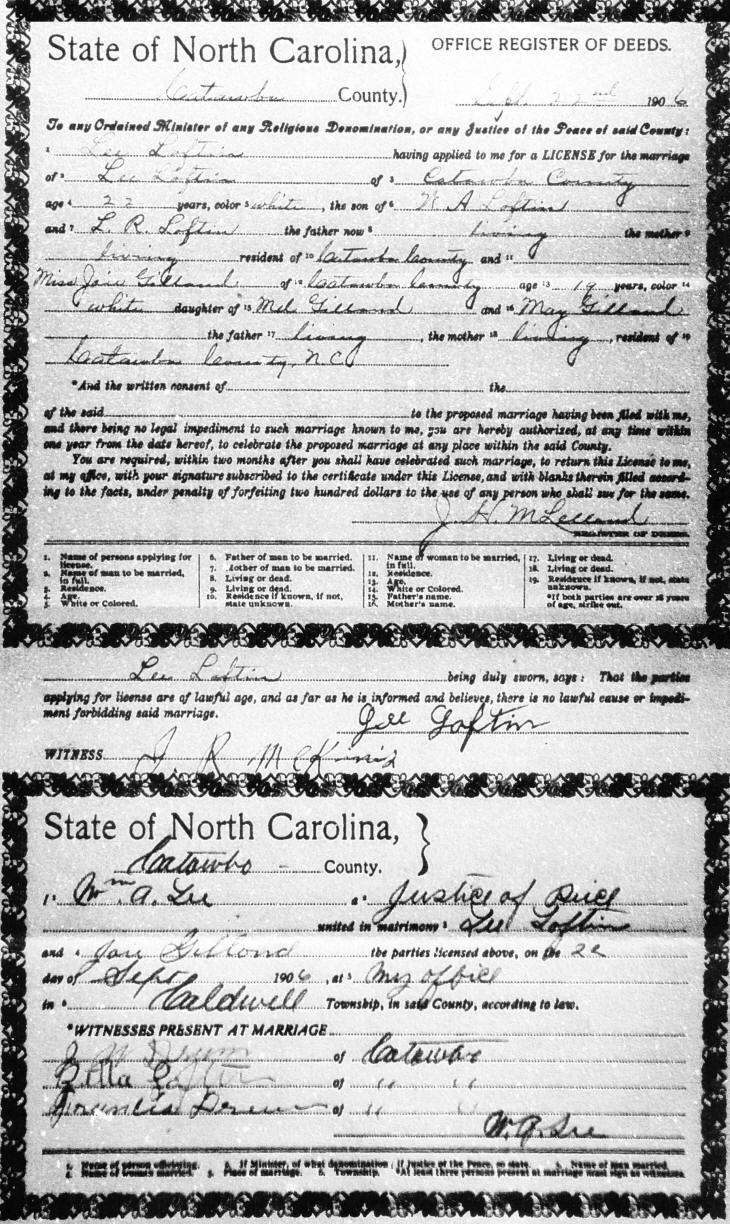 State of North Carolina,
OFFICE REGISTER OF DEEDS.
Catawba County. Sept. 22nd 1906
To any Ordained Minister of any Religious Denomination, or any Justice of the Peace of said County:
1 Lee Loftin having applied to me for a LICENSE for the marriage
of 2 Lee Loftin of 3 Catawba County
age 4 22 years, color 5 white, the son of 6 W A Loftin
and 7 L. R. Loftin the father now 8 living the mother 9
living resident of 10 Catawba County and 11
Miss Joie Gilland of 12 Catawba County age 13 19 years, color 14
white daughter of 15 Mel Gilland and 16 May Gilland
the father 17 living, the mother 18 living, resident of 19
Catawba County, N C
*And the written consent of the
of the said to the proposed marriage having been filed with me,
and there being no legal impediment to such marriage known to me, you are hereby authorized, at any time within
one year from the date hereof, to celebrate the proposed marriage at any place within the said County.
You are required, within two months after you shall have celebrated such marriage, to return this License to me,
at my office, with your signature subscribed to the certificate under this License, and with blanks therein filled accord-
ing to the facts, under penalty of forfeiting two hundred dollars to the use of any person who shall sue for the same.
J. H. McLelland
REGISTER OF DEEDS.
1. Name of persons applying for license.
2. Name of man to be married, in full.
3. Residence.
4. Age.
5. White or Colored.
6. Father of man to be married.
7. Mother of man to be married.
8. Living or dead.
9. Living or dead.
10. Residence if known, if not, state unknown.
11. Name of woman to be married, in full.
12. Residence.
13. Age.
14. White or Colored.
15. Father's name.
16. Mother's name.
17. Living or dead.
18. Living or dead.
19. Residence if known, if not, state unknown.
*If both parties are over 18 years of age, strike out.
Lee Loftin being duly sworn, says: That the parties
applying for license are of lawful age, and as far as he is informed and believes, there is no lawful cause or impedi-
ment forbidding said marriage.
Loftin
WITNESS J. R. McKinis
State of North Carolina,
Catawbo County.
1. Wm. A. Lee a 2 Justice of Peice
united in matrimony 3 Lee Loftin
and 4 Joie Gillond the parties licensed above, on the 22
day of Sept 1906, at 5 My office
in 6 Caldwell Township, in said County, according to law.
*WITNESSES PRESENT AT MARRIAGE
Drum of Catawbo
Loftin of " "
Francis Drum of " "
W. A. Lee
1. Name of person officiating. 2. If Minister, of what denomination; if Justice of the Peace, so state. 3. Name of man married.
4. Name of woman married. 5. Place of marriage. 6. Township. *At least three persons present at marriage must sign as witnesses.